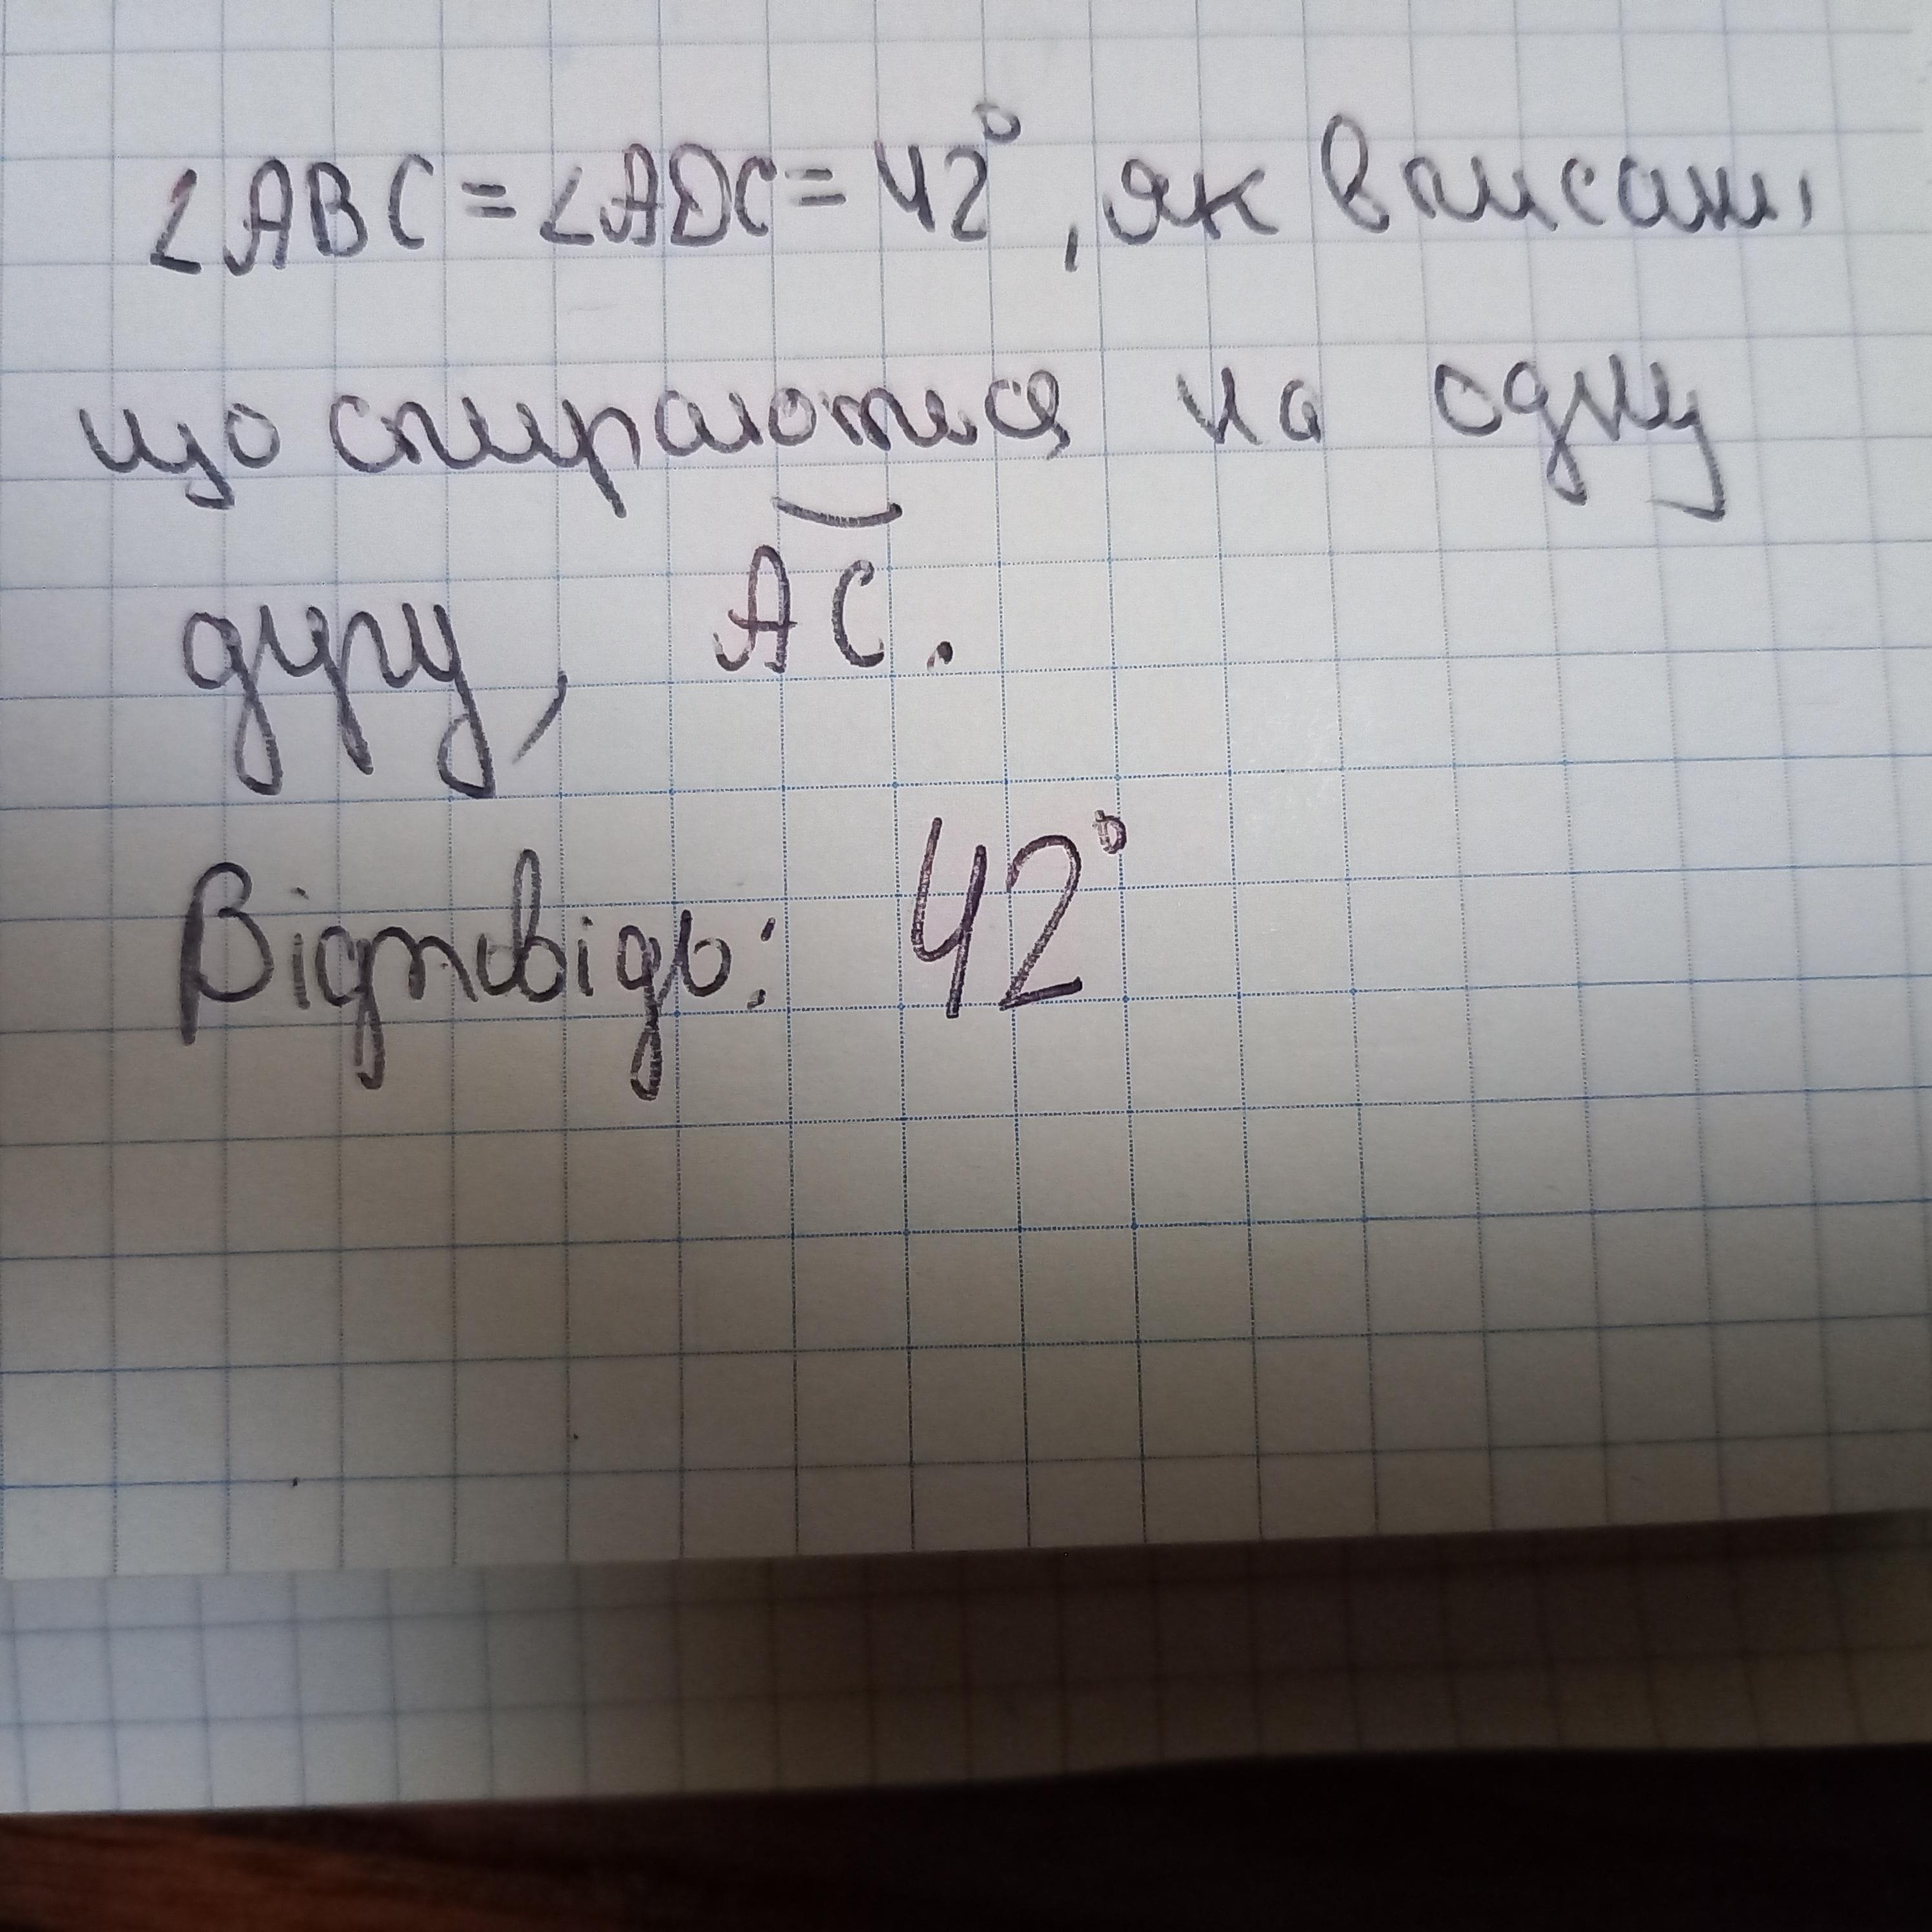 ∠ABC = ∠ADC = 42°, як вписані
що спираються на одну
дугу, ⌣AC.
Відповідь: 42°